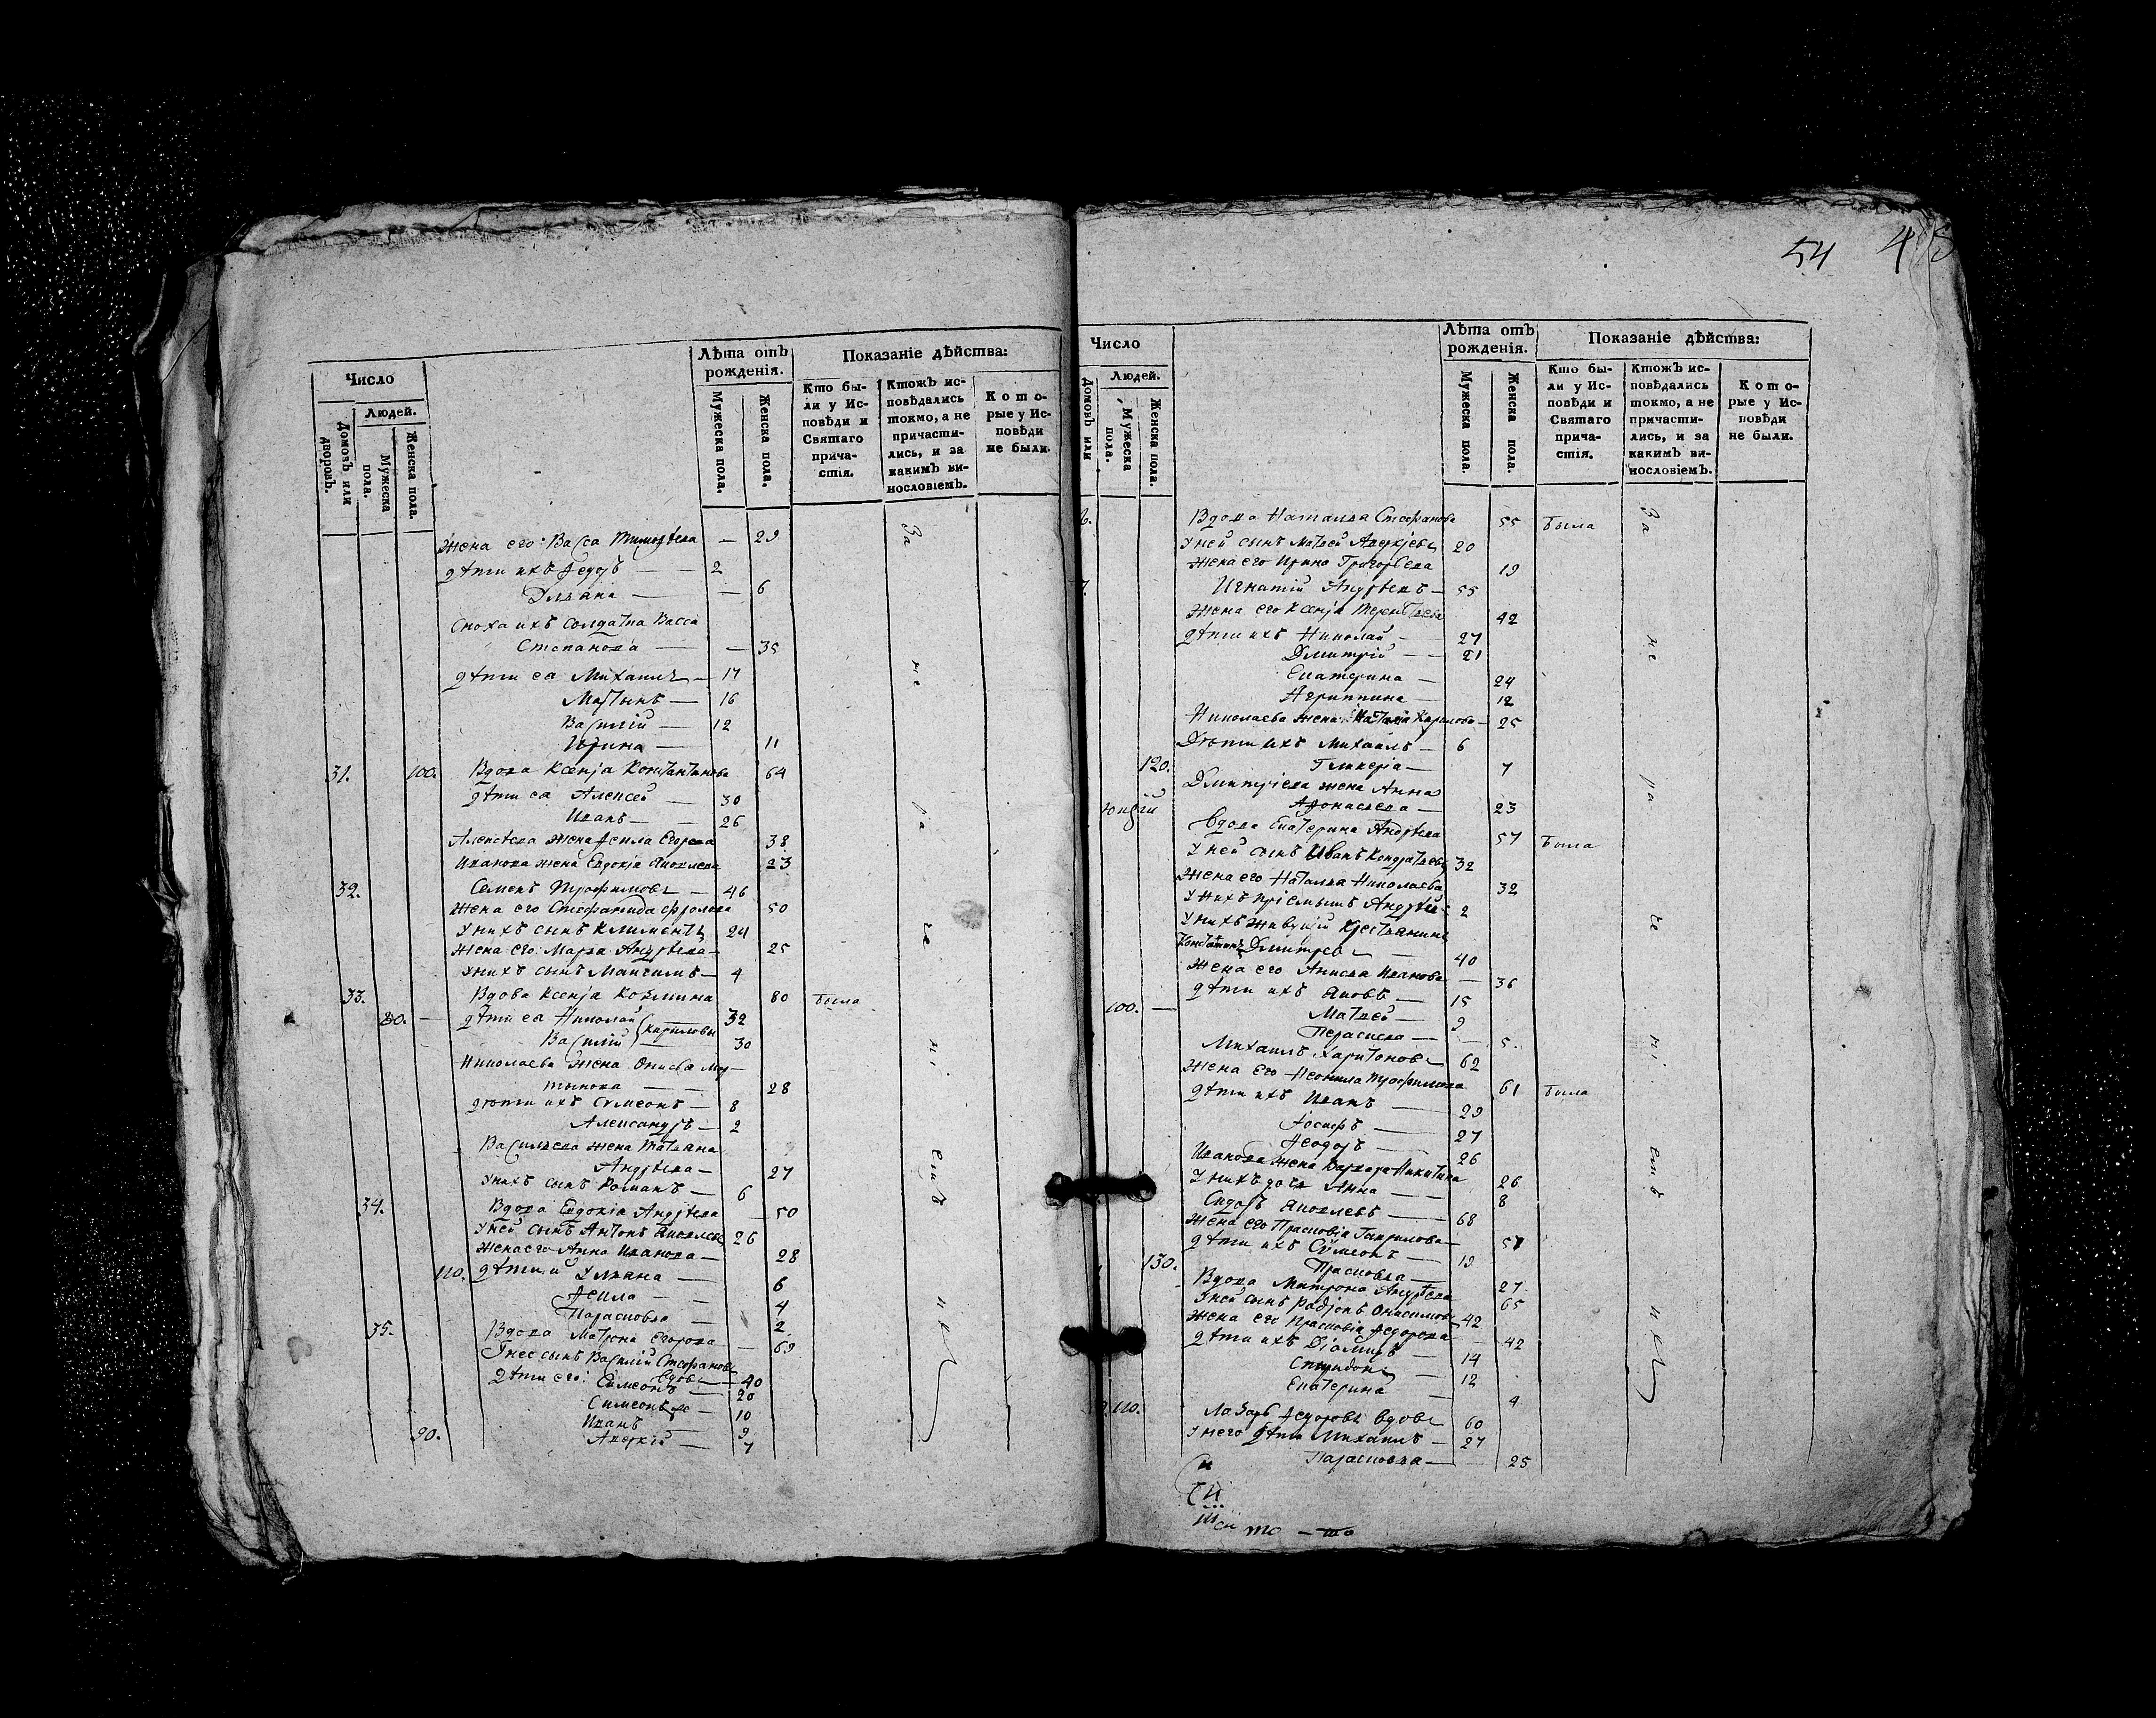 54
Число
Людей.
Домовъ или дворовъ.
Мужеска пола.
Женска пола.
Лѣта отъ рожденія.
Мужеска пола.
Женска пола.
Показаніе дѣйства:
Кто были у Исповѣди и Святаго причастія.
Ктожъ исповѣдались токмо, а не причастились, и за какимъ винословіемъ.
Которые у Исповѣди не были.
Жена его Васса — 29
дѣти ихъ Федоръ — 2
Ульяна — 6
Сноха ихъ солдатка Васса
Степанова — 35
дѣти ея Михаилъ — 17
Мартынъ — 16
Василій — 12
Ирина — 11
31. 100. Вдова Ксенія Константинова 64
дѣти ея Алексей — 30
Иванъ — 26
Алексѣева жена Фекла Егорова 38
Иванова жена Евдокія Яковлева 23
32. Семенъ Трофимовъ — 46
Жена его Стефанида Фролова 50
У нихъ сынъ Климентъ 24
Жена его Марѳа Андрѣева — 25
У нихъ сынъ Максимъ — 4
33. Вдова Ксенія Козмина 80 была
80. — дѣти ея Николай 32
Василій Кириловы 30
Николаева жена
28
дѣти ихъ Сѵмеонъ — 8
Александръ — 2
Васильева жена Татьяна
Андрѣева — 27
У нихъ сынъ Романъ — 6
34. Вдова Евдокія Андрѣева — 50
У ней сынъ Антонъ 26
Жена его Анна Иванова — 28
110. дѣти Ульяна — 6
Фекла — 4
Парасковья — 2
35. Вдова Матрона Егорова — 69
У нее сынъ Василій Стефановъ
вдовъ — 40
дѣти его: Симеонъ — 20
Симеонъ — 10
Иванъ 9
90. Аверкій — 7
За не ра че ні емъ ихъ
Число
Людей.
Домовъ или
Мужеска пола.
Женска пола.
Лѣта отъ рожденія.
Мужеска пола.
Женска пола.
Показаніе дѣйства:
Кто были у Исповѣди и Святаго причастія.
Ктожъ исповѣдались токмо, а не причастились, и за какимъ винословіемъ.
Которые у Исповѣди не были.
6. Вдова Наталья Стефанова 55 была
У ней сынъ Матвей Аверкіевъ 20
Жена его Ирина Григорьева 19
7. Игнатій Андрѣевъ — 55
Жена его Ксенія Терентьева 42
дѣти ихъ Николай — 27
Дмитрій — 21
Екатерина — 24
Агриппина — 12
Николаева жена Наталія Кирилова — 25
Дѣти ихъ Михаилъ — 6
120. Гликерія — 7
Дмитріева жена Анна
Афонасьева — 23
Вдова Екатерина Андрѣева 57 была
У ней сынъ Иванъ Кондратьевъ 32
Жена его Наталья Николаева 32
У нихъ пріемышъ Андрѣй 2
У нихъ живущій крестьянинъ
Константинъ Дмитревъ — 40
Жена его Анисья Иванова — 36
дѣти ихъ Яковъ — 15
100. — Матвей — 9
Парасковья — 5.
Михаилъ Харитоновъ — 62
Жена его Неонила Трофимова 61 была
дѣти ихъ Иванъ — 29
Іосифъ — 27
Феодоръ — 26
Иванова жена Варвара Никитина 26
У нихъ дочь Анна — 8
Сидоръ Яковлевъ — 68
Жена его Прасковія Гаврилова — 51
дѣти ихъ Сѵмеонъ — 19
130. Прасковья — 27
Вдова Матрона Андрѣева 65
У ней сынъ Родіонъ Онисимовъ 42
Жена его Прасковія Федорова — 42
дѣти ихъ Діомидъ — 14
Спиридонъ — 12
Екатерина — 4
110. Лазарь Федоровъ вдовъ 60
У него дѣти Михаилъ — 27
Парасковья — 25
За не ра че ні емъ ихъ